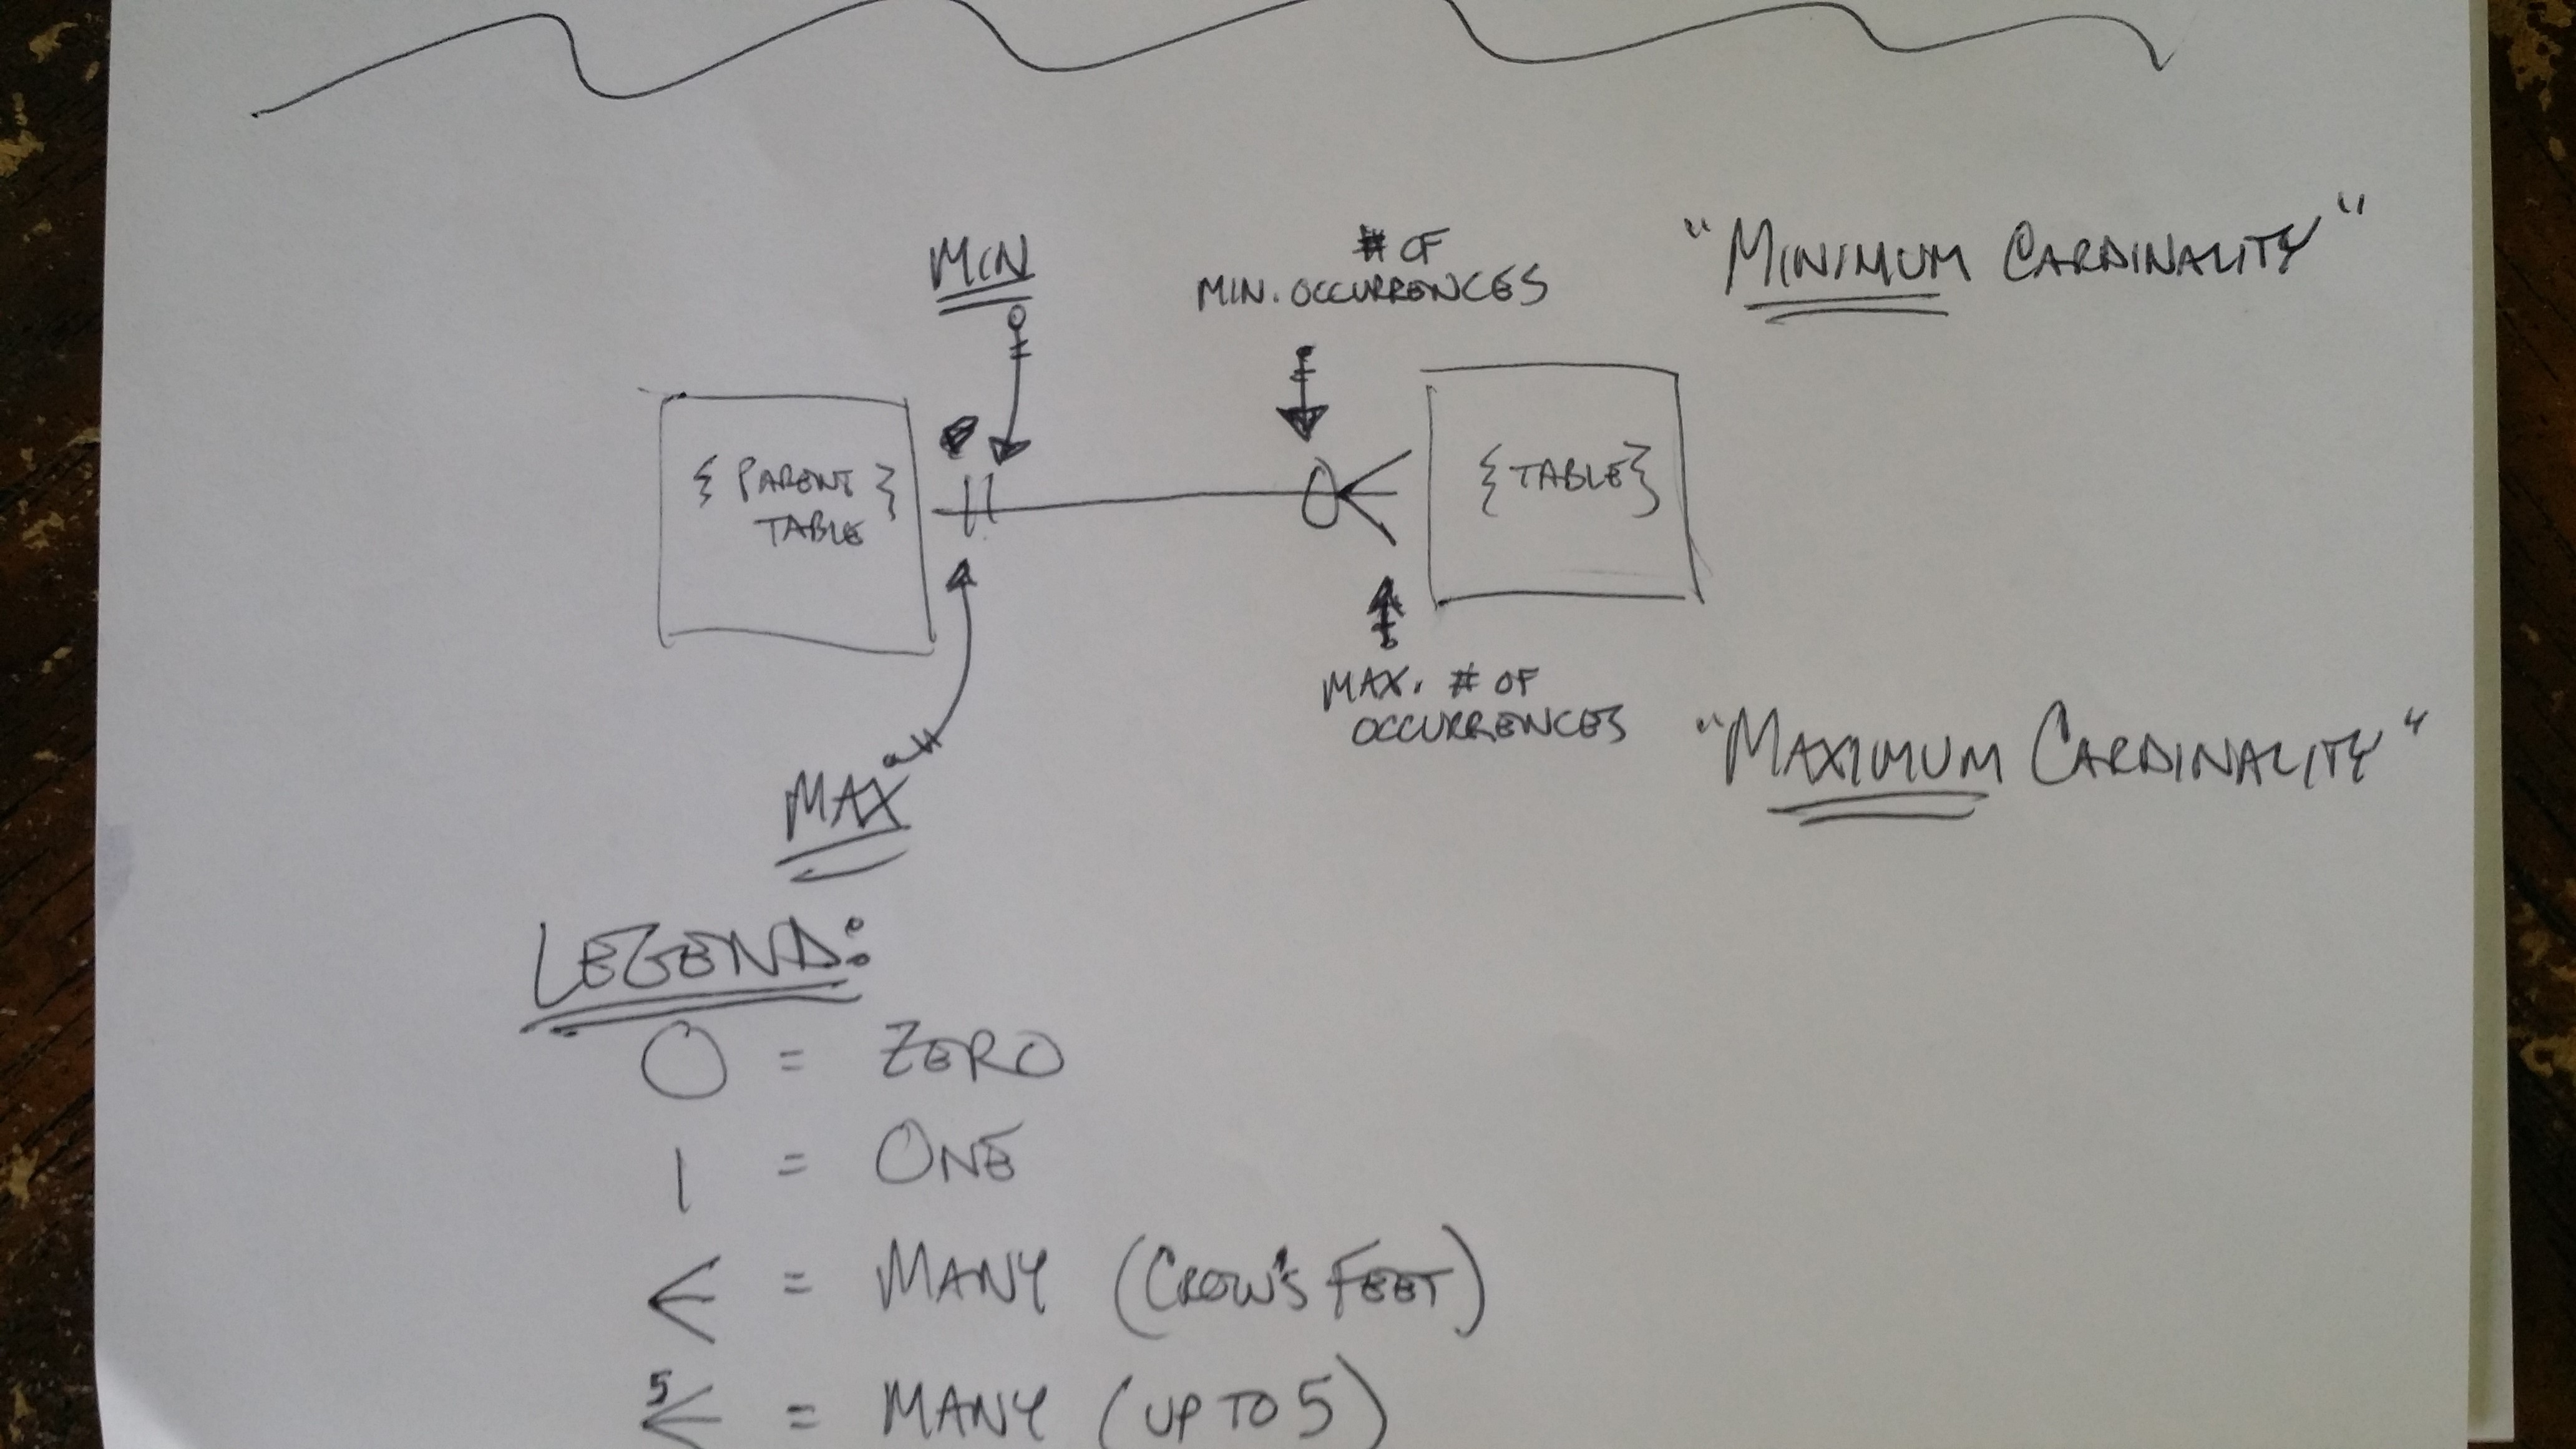 MIN
# OF
MIN. OCCURRENCES
"MINIMUM CARDINALITY"
{ PARENT }
TABLE
{ TABLE }
MAX. # OF
OCCURRENCES
"MAXIMUM CARDINALITY"
MAX
LEGEND:
0 = ZERO
1 = ONE
= MANY (CROW'S FEET)
5 = MANY (UP TO 5)